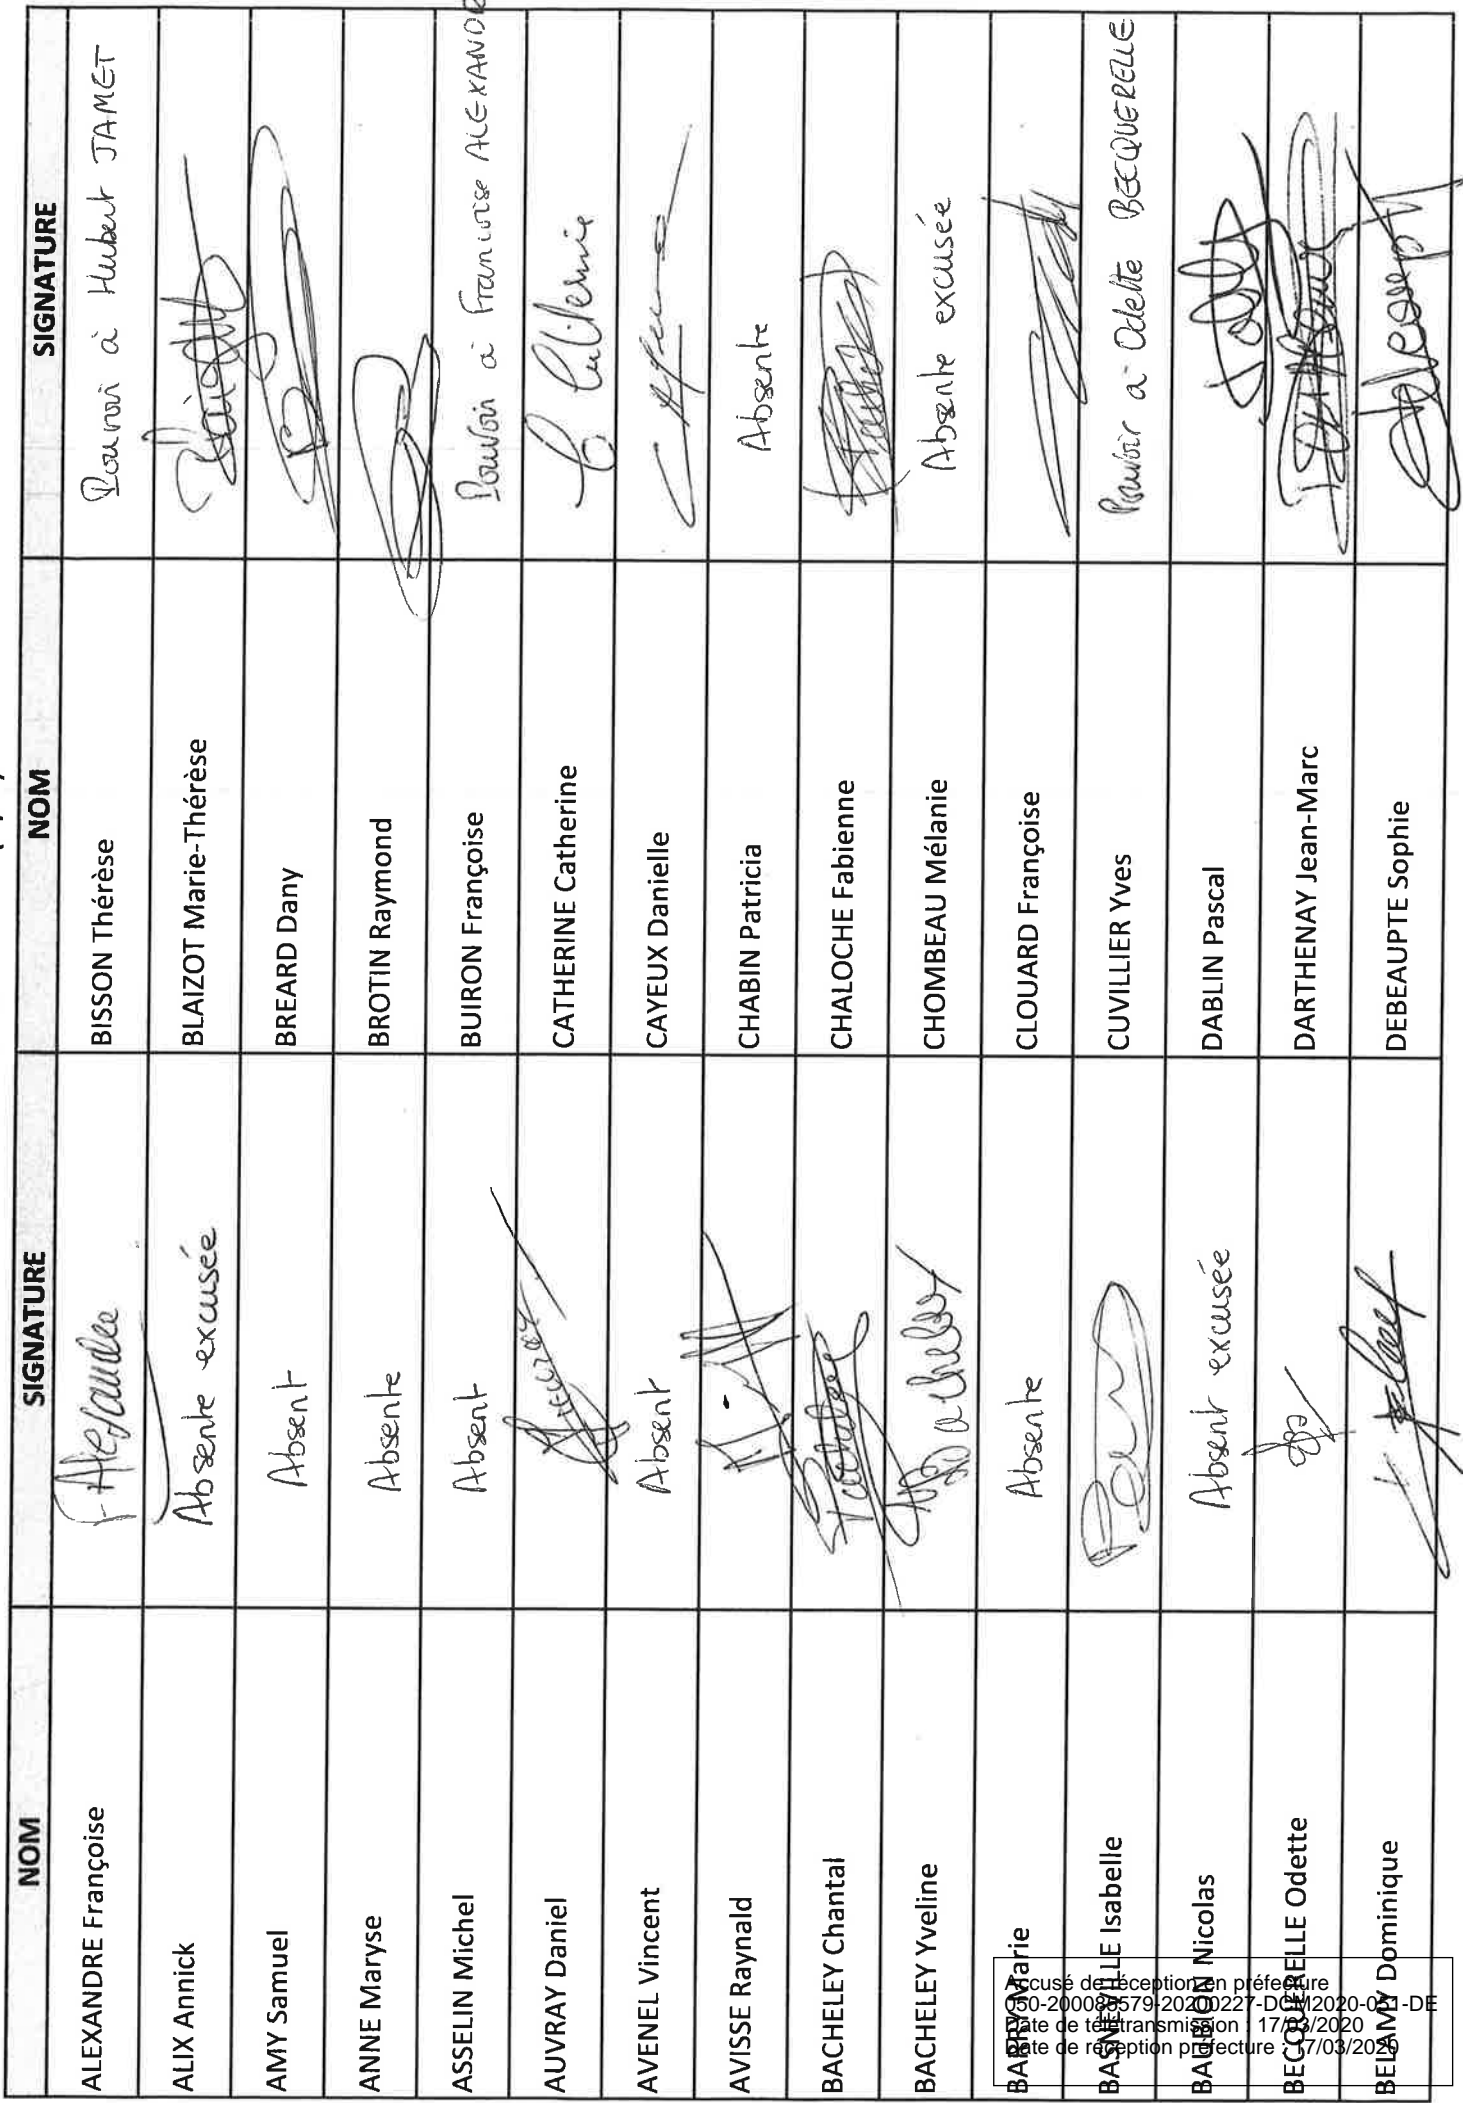 NOM SIGNATURE NOM SIGNATURE
ALEXANDRE Françoise Alexandre BISSON Thérèse Pouvoir à Hubert JAMET
ALIX Annick Absente excusée BLAIZOT Marie-Thérèse
AMY Samuel Absent BREARD Dany
ANNE Maryse Absente BROTIN Raymond
ASSELIN Michel Absent BUIRON Françoise Pouvoir à Françoise ALEXANDRE
AUVRAY Daniel CATHERINE Catherine
AVENEL Vincent Absent CAYEUX Danielle
AVISSE Raynald CHABIN Patricia Absente
BACHELEY Chantal CHALOCHE Fabienne
BACHELEY Yveline CHOMBEAU Mélanie Absente excusée
BARRY Marie Absente CLOUARD Françoise
BASNEVILLE Isabelle CUVILLIER Yves Pouvoir à Odette BECQUERELLE
BAUBION Nicolas Absent excusée DABLIN Pascal
BECQUERELLE Odette DARTHENAY Jean-Marc
BELAMY Dominique DEBEAUPTE Sophie
Accusé de réception en préfecture
050-200085579-20200227-DCM2020-021-DE
Date de télétransmission : 17/03/2020
Date de réception préfecture : 17/03/2020